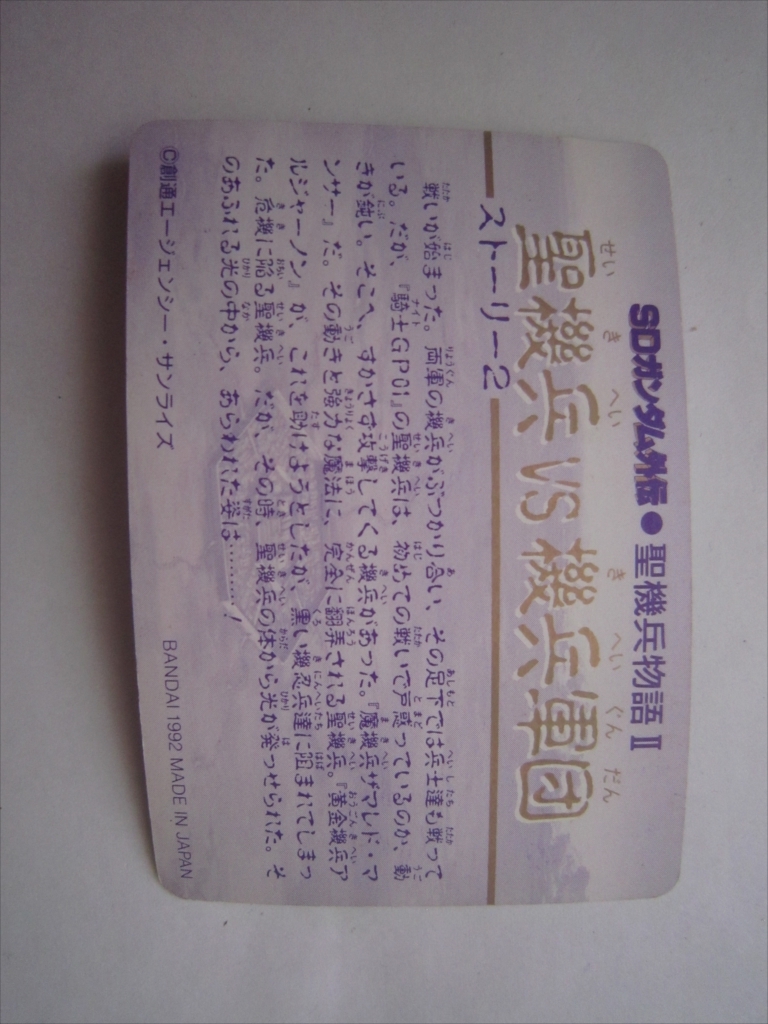 SDガンダム外伝●聖機兵物語Ⅱ
聖機兵VS機兵軍団
ストーリー2
戦いが始まった。両軍の機兵がぶつかり合い、その足下では兵士達も戦って
いる。だが、『騎士GP01』の聖機兵は、初めての戦いで戸惑っているのか、動
きが鈍い。そこへ、すかさず攻撃してくる機兵があった。『魔機兵ザマレド・マ
ンサー』だ。その動きと強力な魔法に、完全に翻弄される聖機兵。『黄金機兵ア
ルジャーノン』が、これを助けようとしたが、黒い機忍兵達に阻まれてしまっ
た。危機に陥る聖機兵。だが、その時、聖機兵の体から光が発っせられた。そ
のあふれる光の中から、あらわれた姿は………!
©創通エージェンシー・サンライズ
BANDAI 1992 MADE IN JAPAN